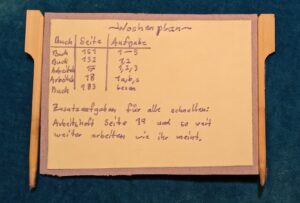 ~Wochenplan~
Buch | Seite | Aufgabe
Buch 151 1-5
Buch 132 1,2
Arbeitsh. 1,2,3
Arbeitsh. 18 1a,b,c
Buch 183 lesen
Zusatzaufgaben für alle schnellen:
Arbeitsheft Seite 19 und so weit
weiter arbeiten wie ihr meint.